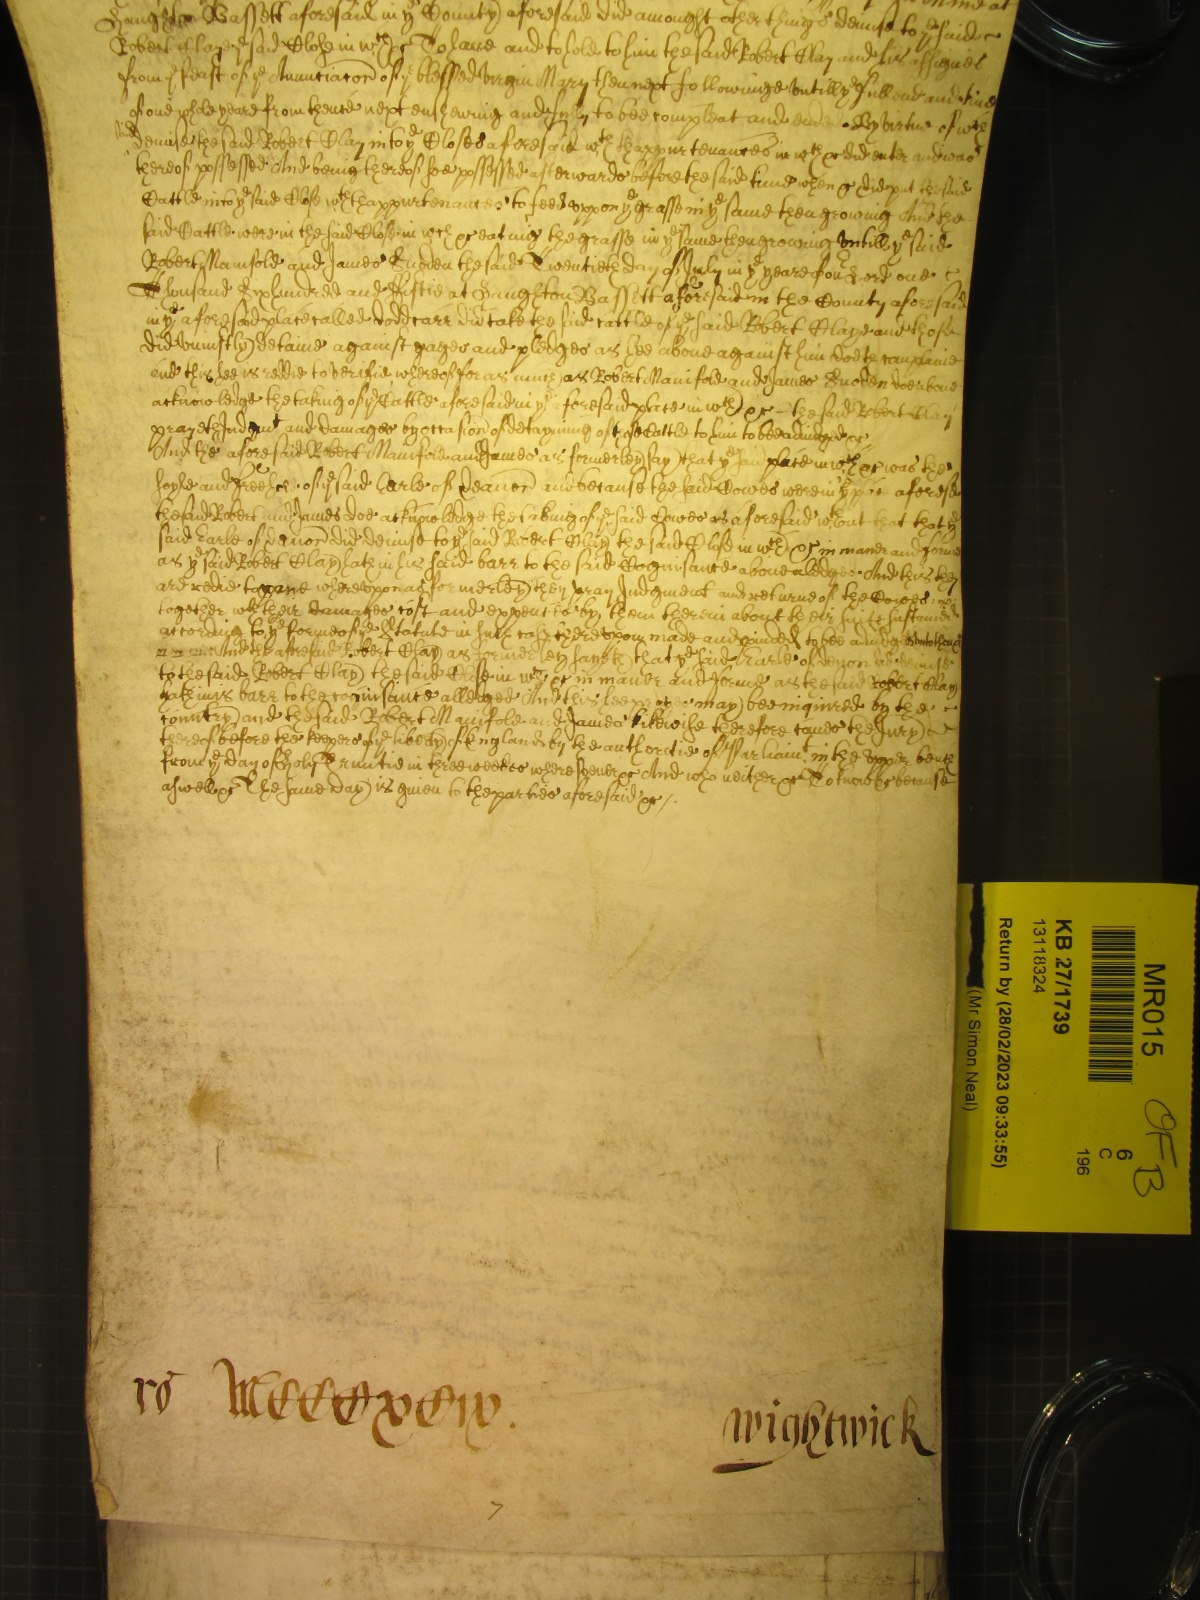 Haughton Bassett aforesaid in ye County aforesaid did amongst other things demise to ye said
Robert Claye ye said Close in wch &c To have and to hold to him the said Robert Clay and his assignes
from ye feast of ye Anunciacon of ye blessed virgin Mary then next followinge untill ye full end and time
of one whole yeare from thence next enshewing and fully to bee compleat and ended By virtue of wch
demise the said Robert Clay into ye Closes aforesaid wth thappurtenances in wch &c did enter and was
thereof possessed And being thereof soe possessed afterwards before the said time when &c did put the said
Cattle into ye said Close wth thappurtenances to feed uppon ye grasse in ye same then growing And the
said Cattle were in the said Close in wch &c eatinig the grasse in ye same then growing untill ye said
Robert Manifold and James Snoden the said Twentieth day of July in ye yeare of our Lord one
Thousand Six hundred and fiftie at Haughton Bassett aforesaid in the County aforesaid
in ye aforesaid place called doddcarr did take the said cattle of ye said Robert Claye and those
did uniustly detaine against gages and pledges as hee above against him doeth complaine
And this hee is redie to verifie whereof for as much as Robert Manifold and James Snoden doe above
acknowledge the taking of ye Cattle aforesaid in ye aforesaid place in wch &c the said Robert Clay
prayeth Judgmt and damages by occasion of detayning of those Cattle to him to bee adiudged &c
And the aforesaid Robert Manifold and James as formerley say that ye said place in wch &c was the
soyle and freehold of ye said Earle of Deavon and because the said Cowes were in ye place aforesd
the said Robert and James doe acknowledge the taking of ye said Cowes as aforesaid wthout that that ye
said Earle of devon did demise to ye said Robert Clay the said Close in wch &c in maner and forme
as ye said Robert Clay hath in his said barr to the said Cognisance above alledged And this they
are redie to prove whereuppon as formerley they pray Judgment and returne of the Cowes
together wth their damages cost and expences by them therein about their suite sustained
according to ye forme of ye Statute in such case thereuppon made and provided to bee adiudged unto them &c
And the aforesaid Robert Clay as formerley sayeth that ye said Earle of devon did demise
to the said Robert Clay the said Close in wch &c in maner and forme as the said Robert Clay
hath in his barr to the cognisance alledged And this hee prayes may bee inquired by the
country and the said Robert Manifold and James likewise therefore comes the Jury
thereof before the keepers of ye liberty of England by the authoritie of Parliamt in the upper bench
from ye day of Holy Trinitie in three weekes wheresoever &c And who neither &c To knowe &c because
aswell &c The same day is given to the parties aforesaid &c
ro MCCCCxCiv.
Wightwick
MR015
KB 27/1739
13118324
Return by (28/02/2023 09:33:55)
(Mr Simon Neal)
6
C
196
OFB